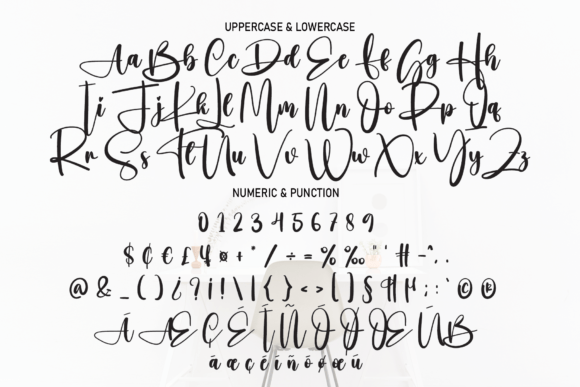 UPPERCASE & LOWERCASE
Aa Bb Cc Dd Ee Ff Gg Hh
Ii Jj Kk Ll Mm Nn Oo Pp Qq
Rr Ss Tt Uu Vv Ww Xx Yy Zz
NUMERIC & PUNCTION
0 1 2 3 4 5 6 7 8 9
$ ¢ € £ ¥ ¤ + * / ÷ = % ‰ " ' # - ^ . ,
@ & _ ( ) ¿ ? ¡ ! \ | { } < > [ ] § ¶ µ ; : ` © ®
Á Æ Ç É Í Ñ Ó Ø Œ Ú ß
á æ ç é í ñ ó ø œ ú